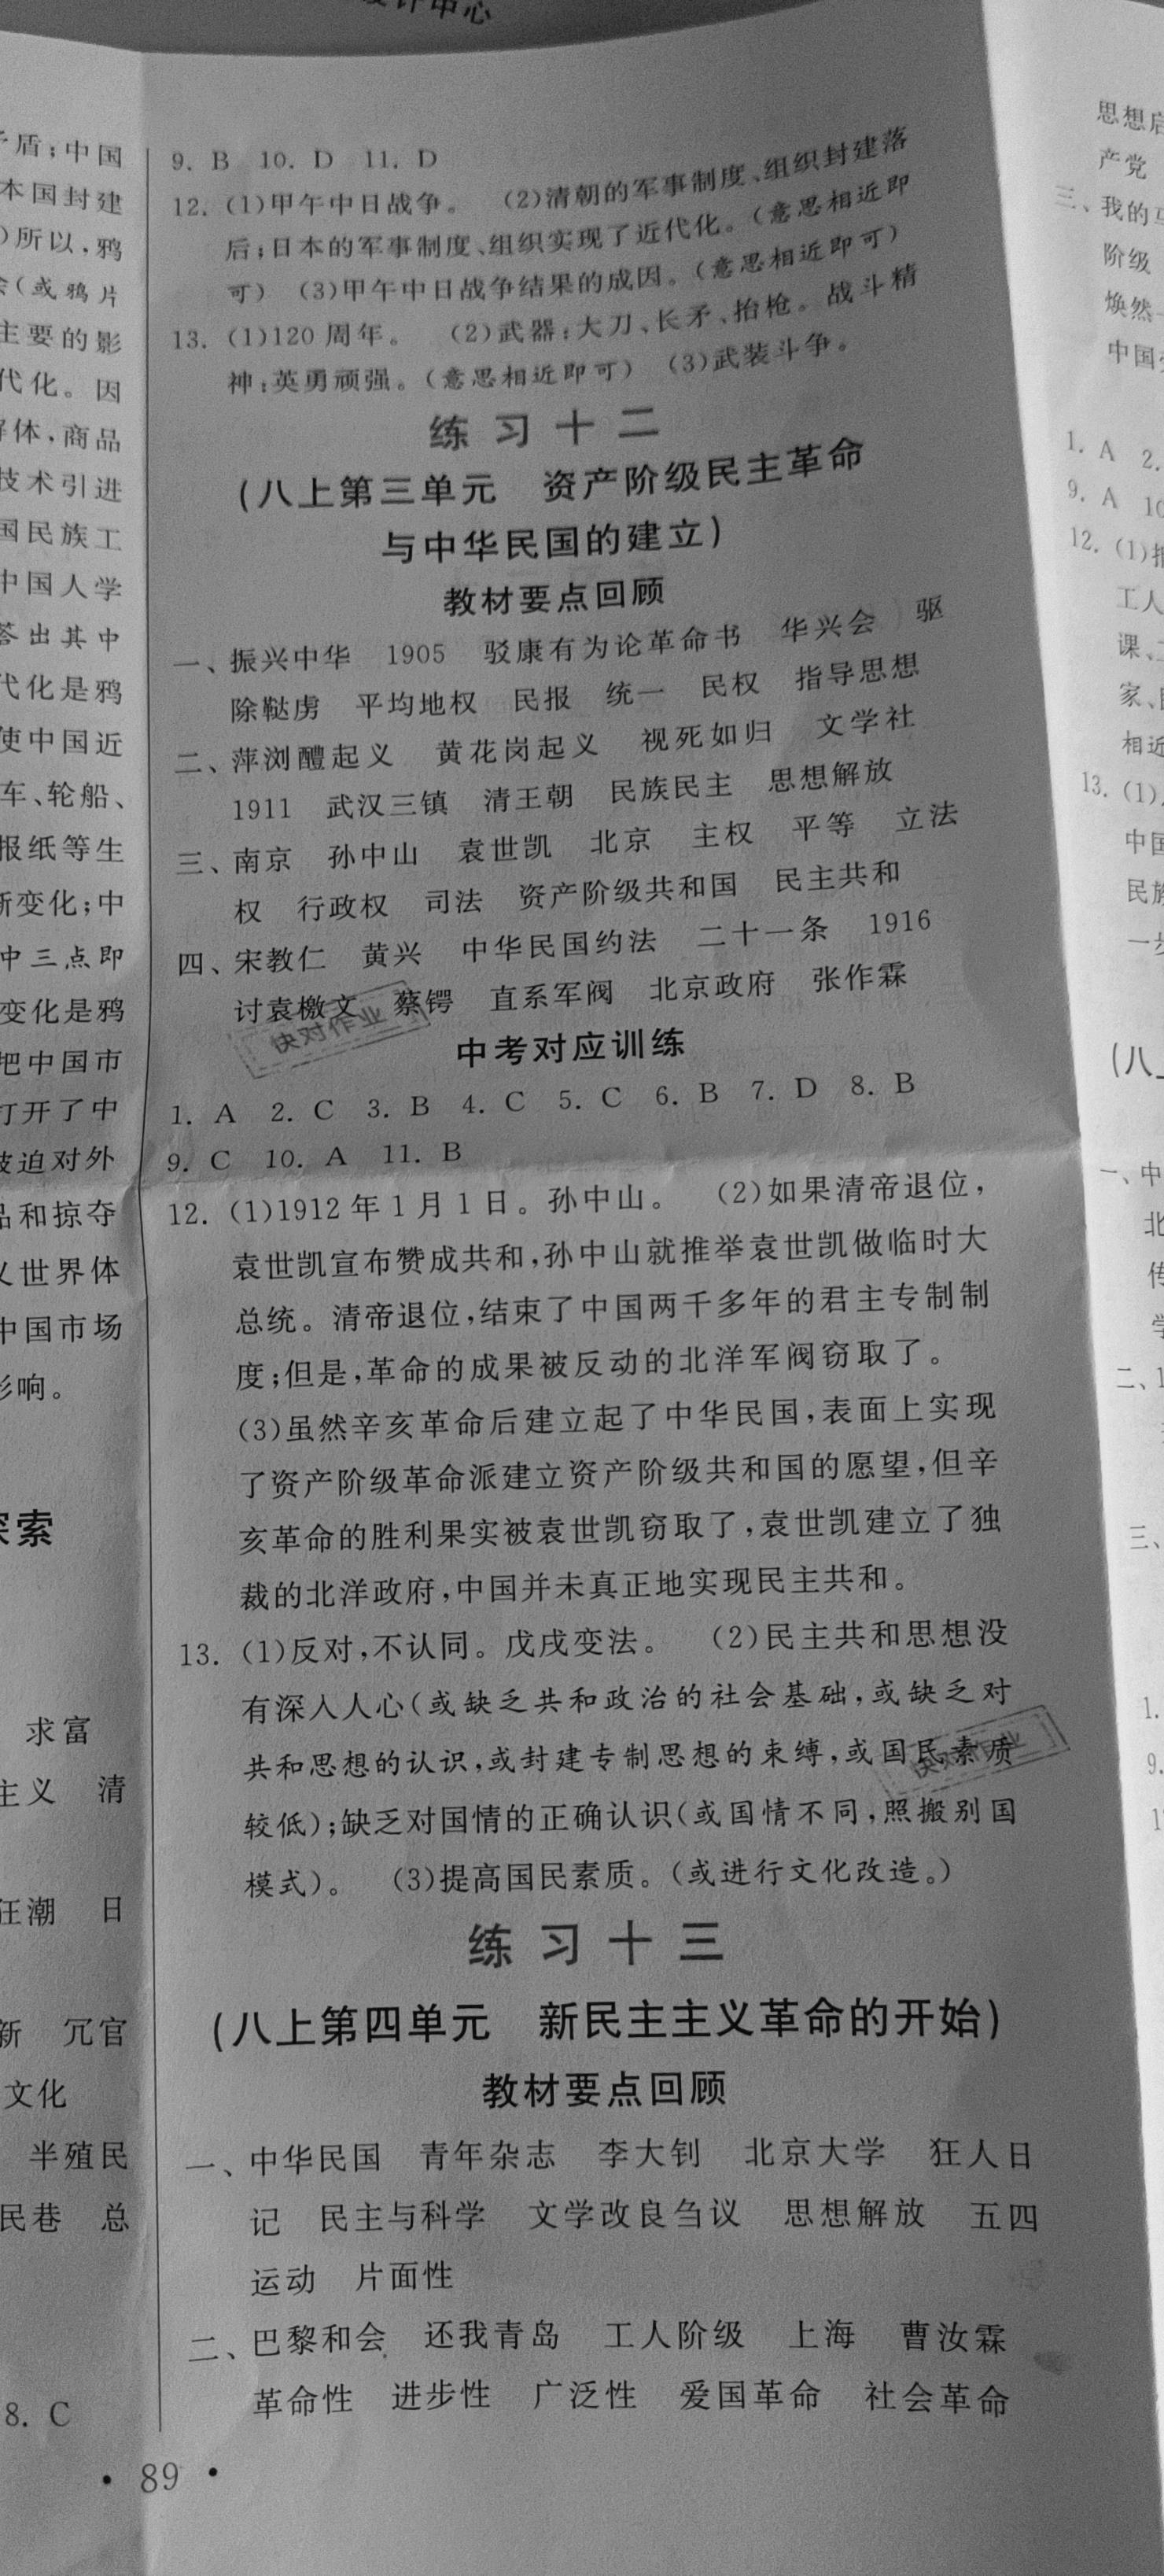 计中心
盾;中国
本国封建
)所以,鸦
(或鸦片
主要的影
代化。因
体,商品
技术引进
国民族工
中国人学
答出其中
代化是鸦
使中国近
车、轮船、
报纸等生
新变化;中
中三点即
变化是鸦
把中国市
打开了中
被迫对外
品和掠夺
义世界体
中国市场
影响。
探索
求富
主义 清
狂潮 日
新 冗官
文化
半殖民
民巷 总
8. C
9. B 10. D 11. D
12. (1)甲午中日战争。 (2)清朝的军事制度、组织封建落
后;日本的军事制度、组织实现了近代化。(意思相近即
可) (3)甲午中日战争结果的成因。(意思相近即可)
13. (1)120周年。 (2)武器:大刀、长矛、抬枪。战斗精
神:英勇顽强。(意思相近即可) (3)武装斗争。
练习十二
(八上第三单元 资产阶级民主革命
与中华民国的建立)
教材要点回顾
一、振兴中华 1905 驳康有为论革命书 华兴会 驱
除鞑虏 平均地权 民报 统一 民权 指导思想
二、萍浏醴起义 黄花岗起义 视死如归 文学社
1911 武汉三镇 清王朝 民族民主 思想解放
三、南京 孙中山 袁世凯 北京 主权 平等 立法
权 行政权 司法 资产阶级共和国 民主共和
四、宋教仁 黄兴 中华民国约法 二十一条 1916
讨袁檄文 蔡锷 直系军阀 北京政府 张作霖
快对作业
中考对应训练
1. A 2. C 3. B 4. C 5. C 6. B 7. D 8. B
9. C 10. A 11. B
12. (1)1912年1月1日。孙中山。 (2)如果清帝退位,
袁世凯宣布赞成共和,孙中山就推举袁世凯做临时大
总统。清帝退位,结束了中国两千多年的君主专制制
度;但是,革命的成果被反动的北洋军阀窃取了。
(3)虽然辛亥革命后建立起了中华民国,表面上实现
了资产阶级革命派建立资产阶级共和国的愿望,但辛
亥革命的胜利果实被袁世凯窃取了,袁世凯建立了独
裁的北洋政府,中国并未真正地实现民主共和。
13. (1)反对,不认同。戊戌变法。 (2)民主共和思想没
有深入人心(或缺乏共和政治的社会基础,或缺乏对
共和思想的认识,或封建专制思想的束缚,或国民素质
快对作业
较低);缺乏对国情的正确认识(或国情不同,照搬别国
模式)。 (3)提高国民素质。(或进行文化改造。)
练习十三
(八上第四单元 新民主主义革命的开始)
教材要点回顾
一、中华民国 青年杂志 李大钊 北京大学 狂人日
记 民主与科学 文学改良刍议 思想解放 五四
运动 片面性
二、巴黎和会 还我青岛 工人阶级 上海 曹汝霖
革命性 进步性 广泛性 爱国革命 社会革命
• 89 •
思想启
产党
三、我的
阶级
焕然
中国
1. A 2.
9. A 10
12. (1)
工人
课、
家、
相近
13. (1)
中国
民族
一步
(八
一、中
北
传
学
二、1
三、
1.
9.